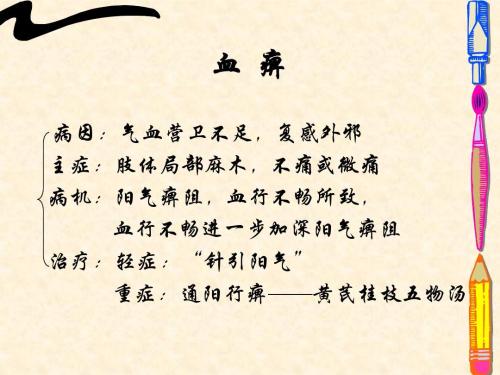 血 痹
病因：气血营卫不足，复感外邪
主症：肢体局部麻木，不痛或微痛
病机：阳气痹阻，血行不畅所致，
血行不畅进一步加深阳气痹阻
治疗：轻症：“针引阳气”
重症：通阳行痹——黄芪桂枝五物汤